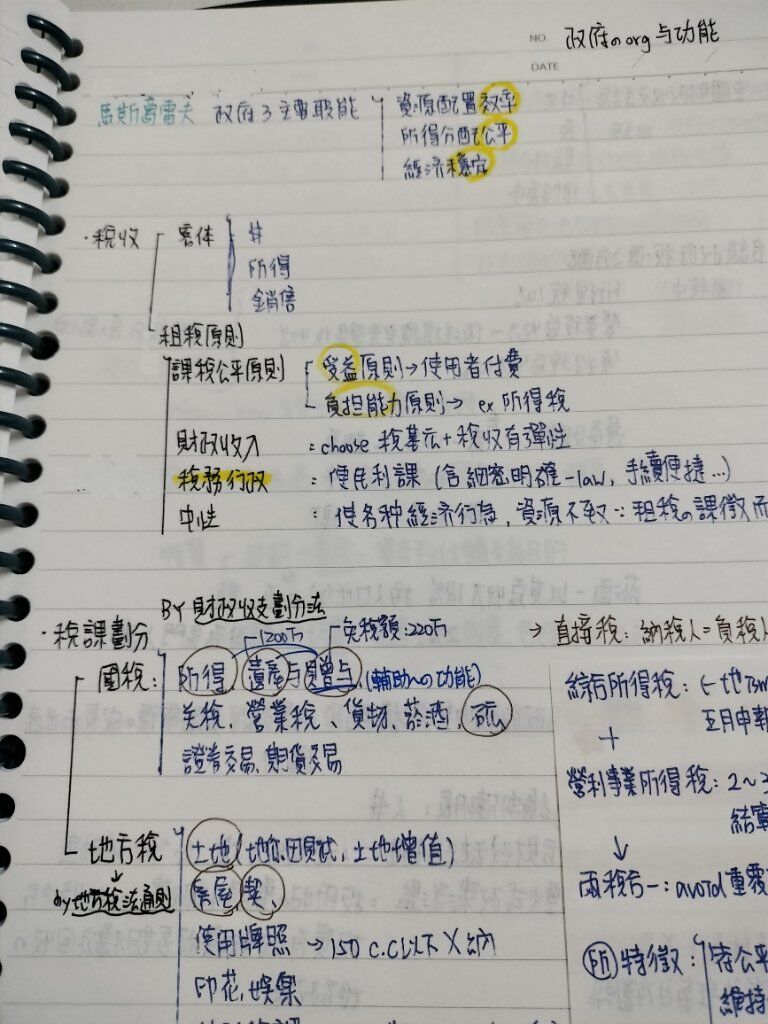 NO. 政府の org 与功能
DATE
馬斯葛雷夫 政府3主要職能
資源配置效率
所得分配公平
經济穩定
·稅收
客体
#
所得
銷售
租稅原則
課稅公平原則
受益原則→使用者付費
負担能力原則→ ex 所得稅
財政收入 : choose 稅基広+稅收有彈性
稅務行政 : 便民利課 (含細密明確-law, 手續便捷…)
中性 : 使各种經济行為, 資源不致∵租稅の課徵而
BY 財政收支劃分法
·稅課劃分
1200万
免稅額:220万
國稅:
所得、遺產与贈与、(輔助への功能)
关稅、營業稅、貨物、菸酒、砿
證券交易、期貨交易
地方稅
by地方稅法通則
土地(地価、田賦, 土地增值)
房屋、契、
使用牌照 →150 c.c以下X納
印花、娛樂
→ 直接稅: 納稅人=負稅人
綜合所得稅:
五月申報
+
營利事業所得稅: 2~3
結算
↓
兩稅合一: avoid 重覆
所 特徵: 符公平
維持